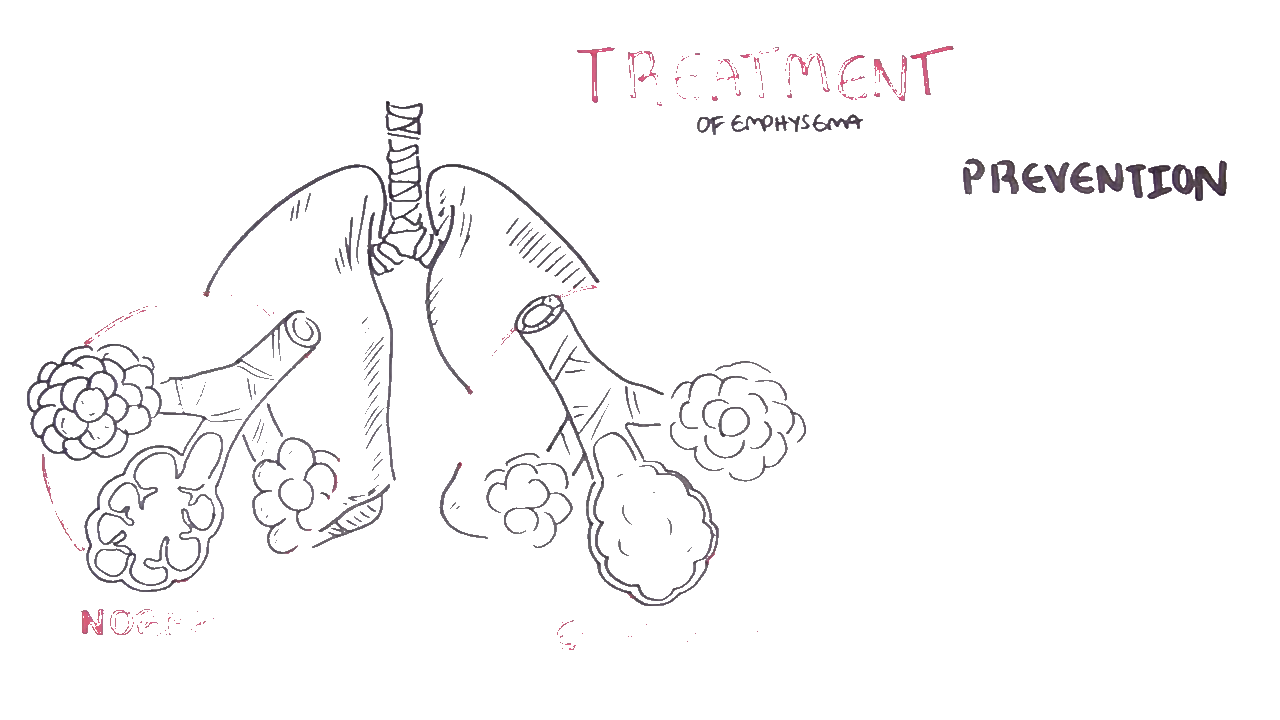 TREATMENT
OF EMPHYSEMA
PREVENTION